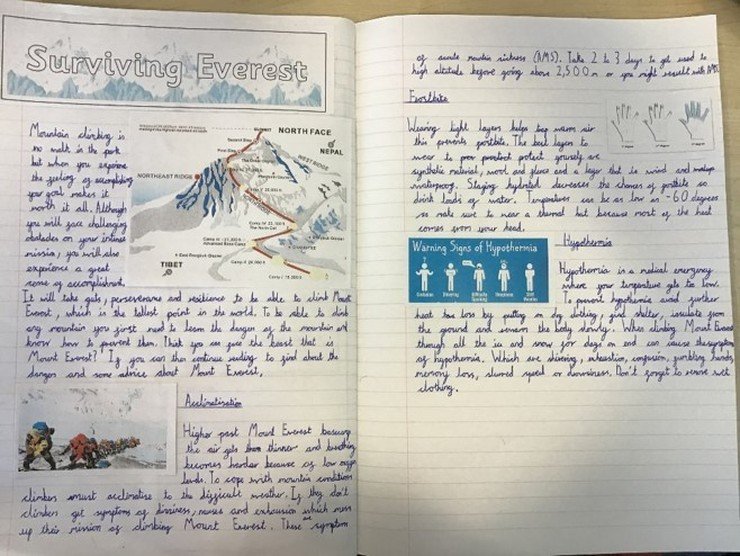 Surviving Everest
Mountain climbing is
no walk in the park
but when you experience
the feeling of accomplishing
your goal makes it
worth it all. Although
you will face challenging
obstacles on your intense
mission, you will also
experience a great
sense of accomplishment.
It will take guts, perseverance and resilience to be able to climb Mount
Everest, which is the tallest point in the world. To be able to climb
any mountain you first need to learn the dangers of the mountain and
know how to prevent them. Think you can face the beast that is
Mount Everest? If you can then continue reading to find about the
dangers and some advice about Mount Everest.
NORTH FACE
SUMMIT
NEPAL
WEST RIDGE
NORTHEAST RIDGE
Second Step
First Step
The North Col
Advanced Base Camp
East Rongbuk Glacier
TIBET
Acclimatisation
Higher past Mount Everest
the air gets thinner and breathing
becomes harder because of low oxygen
levels. To cope with mountain conditions
climbers must acclimatise to the difficult weather. If they don't
climbers get symptoms of dizziness, nausea and exhaustion which mess
up their mission of climbing Mount Everest. These symptoms
of acute mountain sickness (AMS). Take 2 to 3 days to get used to
high altitude before going above 2,500m or you might result with AMS.
Frostbite
Wearing light layers helps trap warm air
this prevents frostbite. The best layers to
wear to protect yourself are
synthetic material, wool and fleece and a layer that is wind and
waterproof. Staying hydrated decreases the chances of frostbite so
drink loads of water. Temperatures can be as low as -60 degrees
so make sure to wear a thermal hat because most of the heat
comes from your head.
Warning Signs of Hypothermia
Confusion
Shivering
Difficulty Speaking
Sleepiness
Stiff Muscles
Hypothermia
Hypothermia is a medical emergency
where your temperature gets to low.
To prevent hypothermia avoid further
heat loss by putting on dry clothing, find shelter, insulate from
the ground and warm the body slowly. When climbing Mount Everest
through all the ice and snow for days on end can cause the symptoms
of hypothermia. Which are shivering, exhaustion, confusion, fumbling hands,
memory loss, slurred speech or drowsiness. Don't forget to remove wet
clothing.